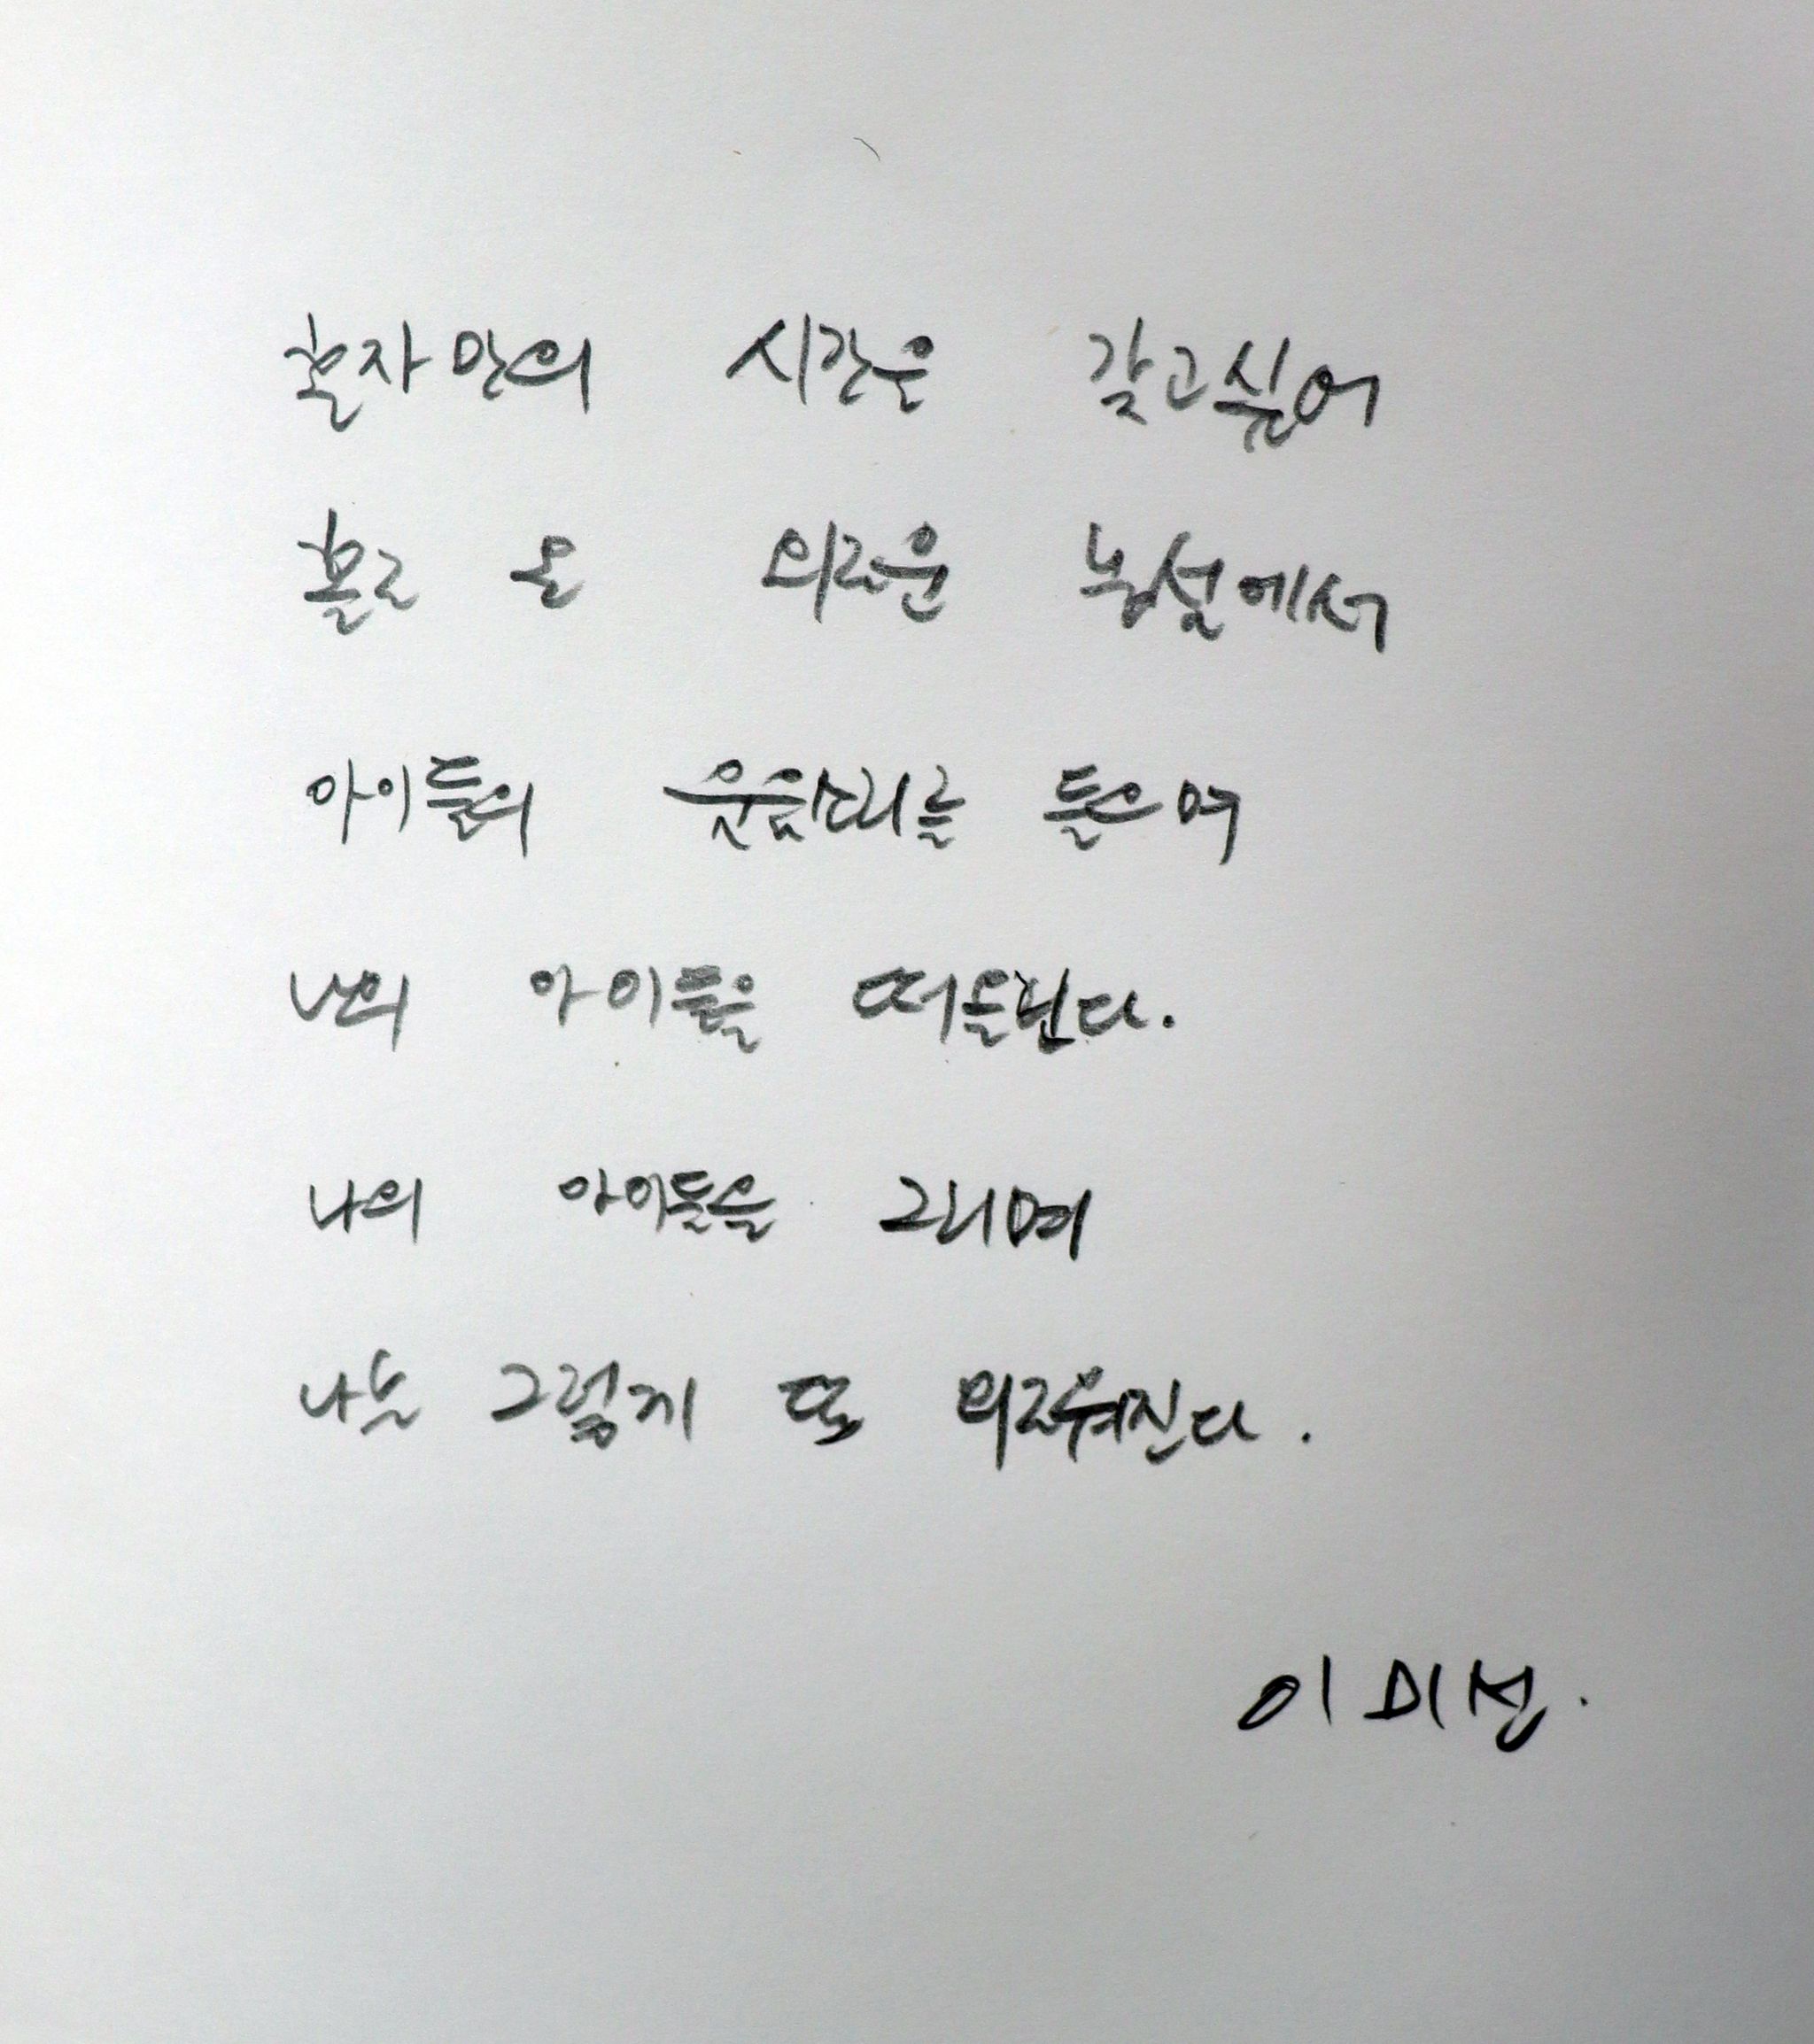 혼자만의 시간은 갖고싶어
홀로 온 외로운 농설에서
아이들의 웃음소리를 들으며
나의 아이들을 떠올린다.
나의 아이들을 그리며
나는 그렇게 또 외로워진다.
이미선.